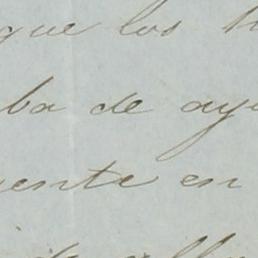 que los
ba de ay
ente en